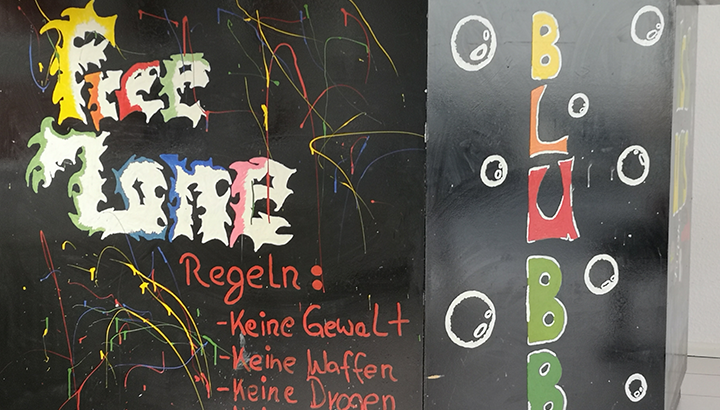 Free
Zone
Regeln:
-Keine Gewalt
-Keine Waffen
-Keine Drogen
B
L
U
B
B